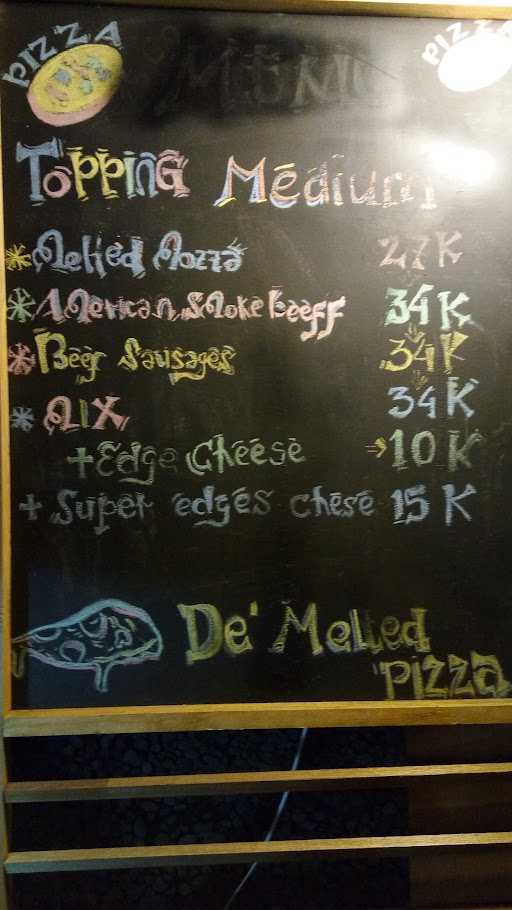 PIZZA
PIZZA
MENU
TOPPING MEDIUM
Melted Mozza 27K
American Smoke Beeff 34K
Beef Sausages 34K
MIX 34K
+Edge Cheese → 10K
+ Super edges chese 15K
De' Melled
Pizza